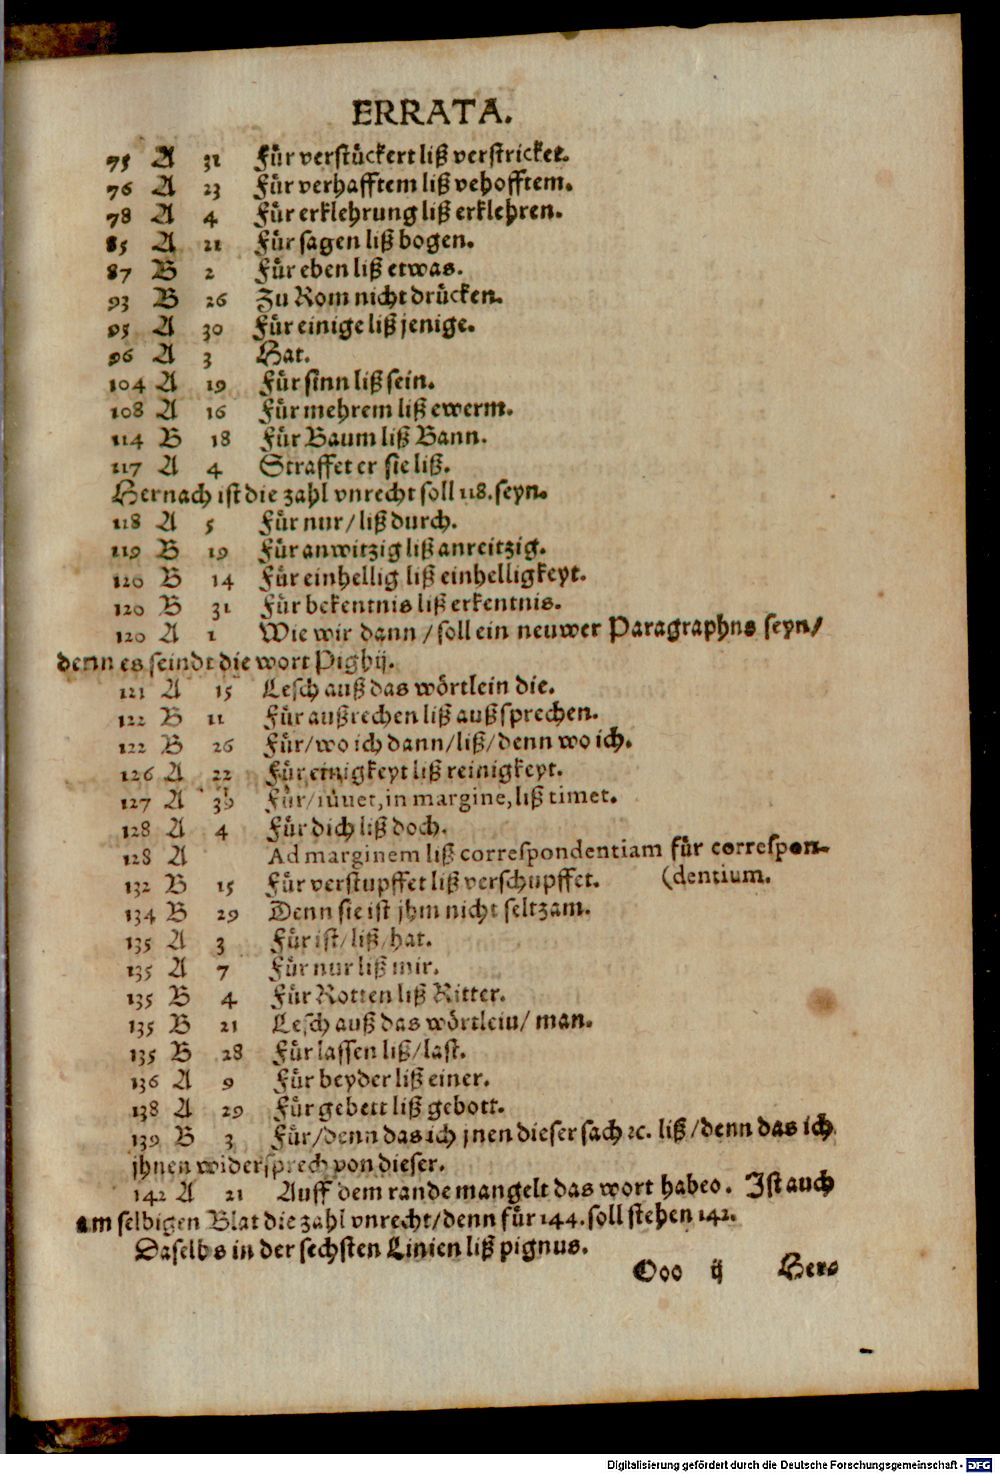 ERRATA.
75 A 31 Für verstückert liß verstricket.
76 A 23 Für verhafftem liß vehofftem.
78 A 4 Für erklehrung liß erklehren.
85 A 21 Für sagen liß bogen.
87 B 2 Für eben liß etwas.
93 B 26 Zu Rom nicht drücken.
95 A 30 Für einige liß jenige.
96 A 3 Hat.
104 A 19 Für sinn liß sein.
108 A 16 Für mehrem liß ewerm.
114 B 18 Für Baum liß Bann.
117 A 4 Straffet er sie liß.
Hernach ist die zahl vnrecht soll 118. seyn.
118 A 5 Für nur / liß durch.
119 B 19 Für anwitzig liß anreitzig.
120 B 14 Für einhellig liß einhelligkeyt.
120 B 31 Für bekentnis liß erkentnis.
120 A 1 Wie wir dann / soll ein neuwer Paragraphns seyn/
denn es seindt die wort Pighij.
121 A 15 Lesch auß das wörtlein die.
122 B 11 Für außrechen liß außsprechen.
122 B 26 Für/wo ich dann/liß/denn wo ich.
126 A 22 Für einigkeyt liß reinigkeyt.
127 A Für/iůuet, in margine, liß timet.
128 A 4 Für dich liß doch.
128 A Ad marginem liß correspondentiam für correspon-
132 B 15 Für verstupffet liß verschupffet. (dentium.
134 B 29 Denn sie ist jhm nicht seltzam.
135 A 3 Für ist/liß/hat.
135 A 7 Für nur liß mir.
135 B 4 Für Rotten liß Ritter.
135 B 21 Lesch auß das wörtlein/ man.
135 B 28 Für lassen liß/last.
136 A 9 Für beyder liß einer.
138 A 29 Für gebett liß gebott.
139 B 3 Für/denn das ich jnen dieser sach ꝛc. liß /denn das ich
jhnen widersprech von dieser.
142 A 21 Auff dem rande mangelt das wort habeo. Ist auch
am selbigen Blat die zahl vnrecht/denn für 144. soll stehen 142.
Daselbs in der sechsten Linien liß pignus.
Ooo ij Her-
Digitalisierung gefördert durch die Deutsche Forschungsgemeinschaft - DFG